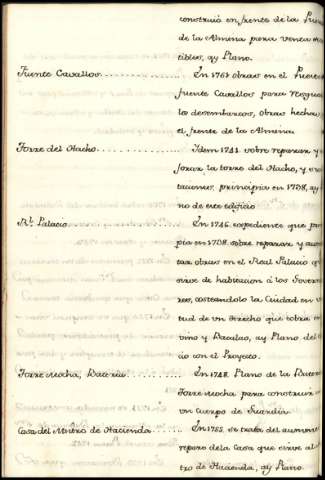 construió en frente de la
de la Almina para venta de
tibles, ay Plano.
Fuente Cavallos En 1761 obras en el
fuente Cavallos para resgua
los desembarcos, obras hecha
el frente de la Almina
Torre del Hacho Idem 1741 sobre reparar y
forzar la torre del Hacho, y
taciones principia en 1708, ay
no de este edificio
Rl. Palacio En 1746 expediente que
pia en 1708 sobre reparar y
tar obras en el Real Palacio
sirve de habitacion á los Governa
res, costeandolo la Ciudad en
tud de un derecho que cobra
vino y Bacalao, ay Plano del
cio con el Proyecto.
Torre Mocha, Bateria En 1748. Plano de la Bateria
Torre Mocha para construir
un cuerpo de Guardia
Casa del Mntro de Hacienda En 1755 se trata del aumento
reparo dela Casa que sirve al
tro de Hacienda, ay Plano.